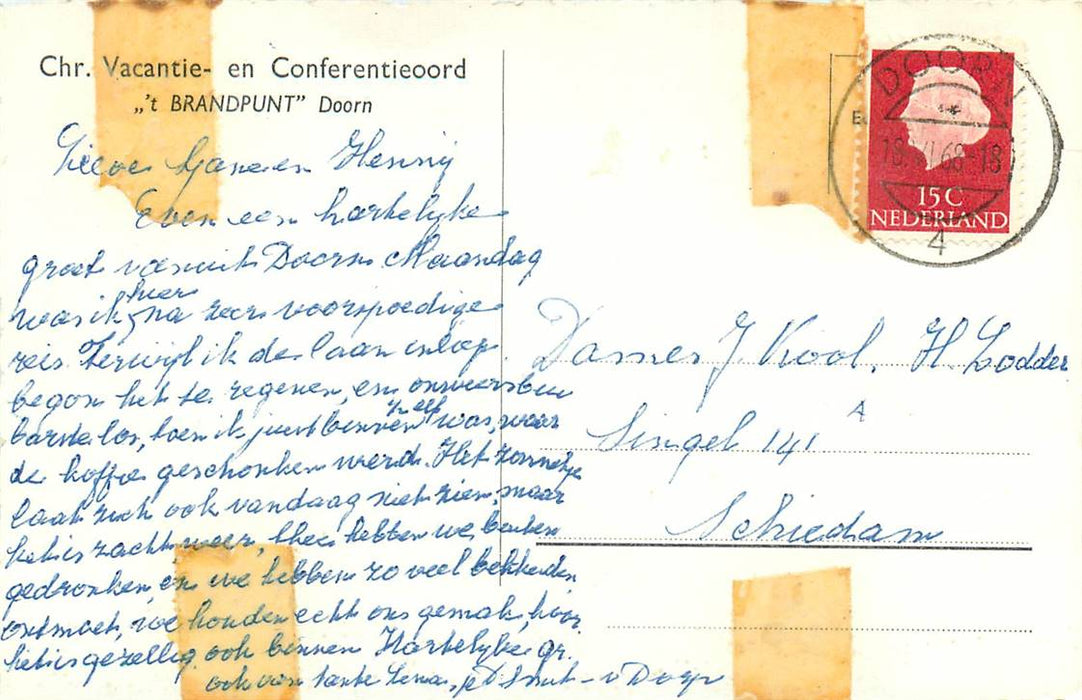 Chr. Vacantie- en Conferentieoord
„'t BRANDPUNT” Doorn
Lieve Jane en Henny
Even een hartelyke
groet vanuit Doorn. Maandag
was ik hier na zeer voorspoedige
reis. Terwyl ik de laan inliep
begon het te regenen, en onweersbui
barstte los, toen ik juist binnen was, waar
de koffie geschonken werd. Het zonnetje
laat zich ook vandaag niet zien, maar
het is zacht weer, thee hebben we buiten
gedronken, en we hebben zo veel bekenden
ontmoet, we houden echt ons gemak, hoor.
het is gezellig ook binnen Hartelyke gr.
ook van tante Lena, Smit - v Dorp
DOORN
18 VI 68-18
4
15 C
NEDERLAND
Dames J Kool, H. Lodder
Singel 141 A
Schiedam